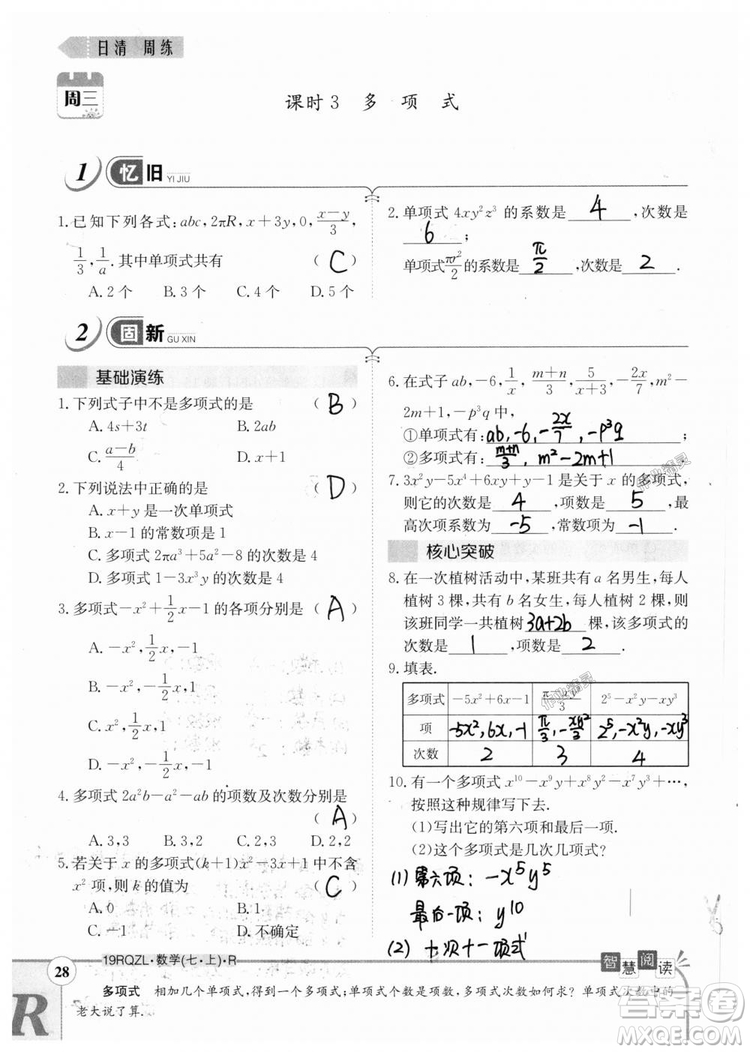 日清 周练
周三
课时3 多 项 式
1 忆旧 YI JIU
1. 已知下列各式:abc,2πR,x+3y,0,\frac{x-y}{3},
\frac{1}{3},\frac{1}{a}.其中单项式共有 ( C )
A. 2个 B. 3个 C. 4个 D. 5个
2. 单项式 4xy²z³ 的系数是 4 ,次数是
6 ;
单项式\frac{πr²}{2}的系数是 \frac{π}{2} ,次数是 2 .
2 固新 GU XIN
基础演练
1. 下列式子中不是多项式的是 ( B )
A. 4s+3t B. 2ab
C. \frac{a-b}{4} D. x+1
2. 下列说法中正确的是 ( D )
A. x+y 是一次单项式
B. x-1 的常数项是1
C. 多项式 2πa³+5a²-8 的次数是 4
D. 多项式 1-3x³y 的次数是 4
3. 多项式-x²+\frac{1}{2}x-1的各项分别是 ( A )
A. -x²,\frac{1}{2}x,-1
B. -x²,-\frac{1}{2}x,-1
C. x²,\frac{1}{2}x,1
D. -x²,-\frac{1}{2}x,1
4. 多项式 2a²b-a²-ab 的项数及次数分别是
( A )
A. 3,3 B. 3,2 C. 2,3 D. 2,2
5. 若关于 x 的多项式(k+1)x³-3x-2中不含
x³ 项,则 k 的值为 ( C )
A. 0 B. 1
C. -1 D. 不确定
6. 在式子 ab,-6,\frac{1}{x},\frac{m+n}{3},\frac{5}{x+3},-\frac{2x}{7},m²-
2m+1,-p³q 中,
①单项式有: ab,-6,-\frac{2x}{7},-p³q
②多项式有: \frac{m+n}{3},m²-2m+1 .
7. 3x²y-5x⁴+6x+y-1是关于 x 的多项式,
则它的次数是 4 ,项数是 5 ,最
高次项系数为 -5 ,常数项为 -1 .
核心突破
8. 在一次植树活动中,某班共有 a 名男生,每人
植树 3 棵,共有 b 名女生,每人植树 2 棵,则
该班同学一共植树 3a+2b 棵,该多项式的
次数是 1 ,项数是 2 .
9. 填表.
多项式 -5x²+6x-1 2⁵-x²y-xy³
项 -5x²,6x,-1 \frac{π}{3},-\frac{xy²}{3} 2⁵,-x²y,-xy³
次数 2 3 4
10. 有一个多项式 x¹⁰-x⁹y+x⁸y²-x⁷y³+…,
按照这种规律写下去.
(1)写出它的第六项和最后一项.
(2)这个多项式是几次几项式?
(1) 第六项: -x⁵y⁵
最后一项: y¹⁰
(2) 十次十一项式
28 19RQZL·数学(七·上)·R
智慧阅读
多项式 相加几个单项式,得到一个多项式;单项式个数是项数,多项式次数如何求? 单项式次数中的
老大说了算.
R
答案圈